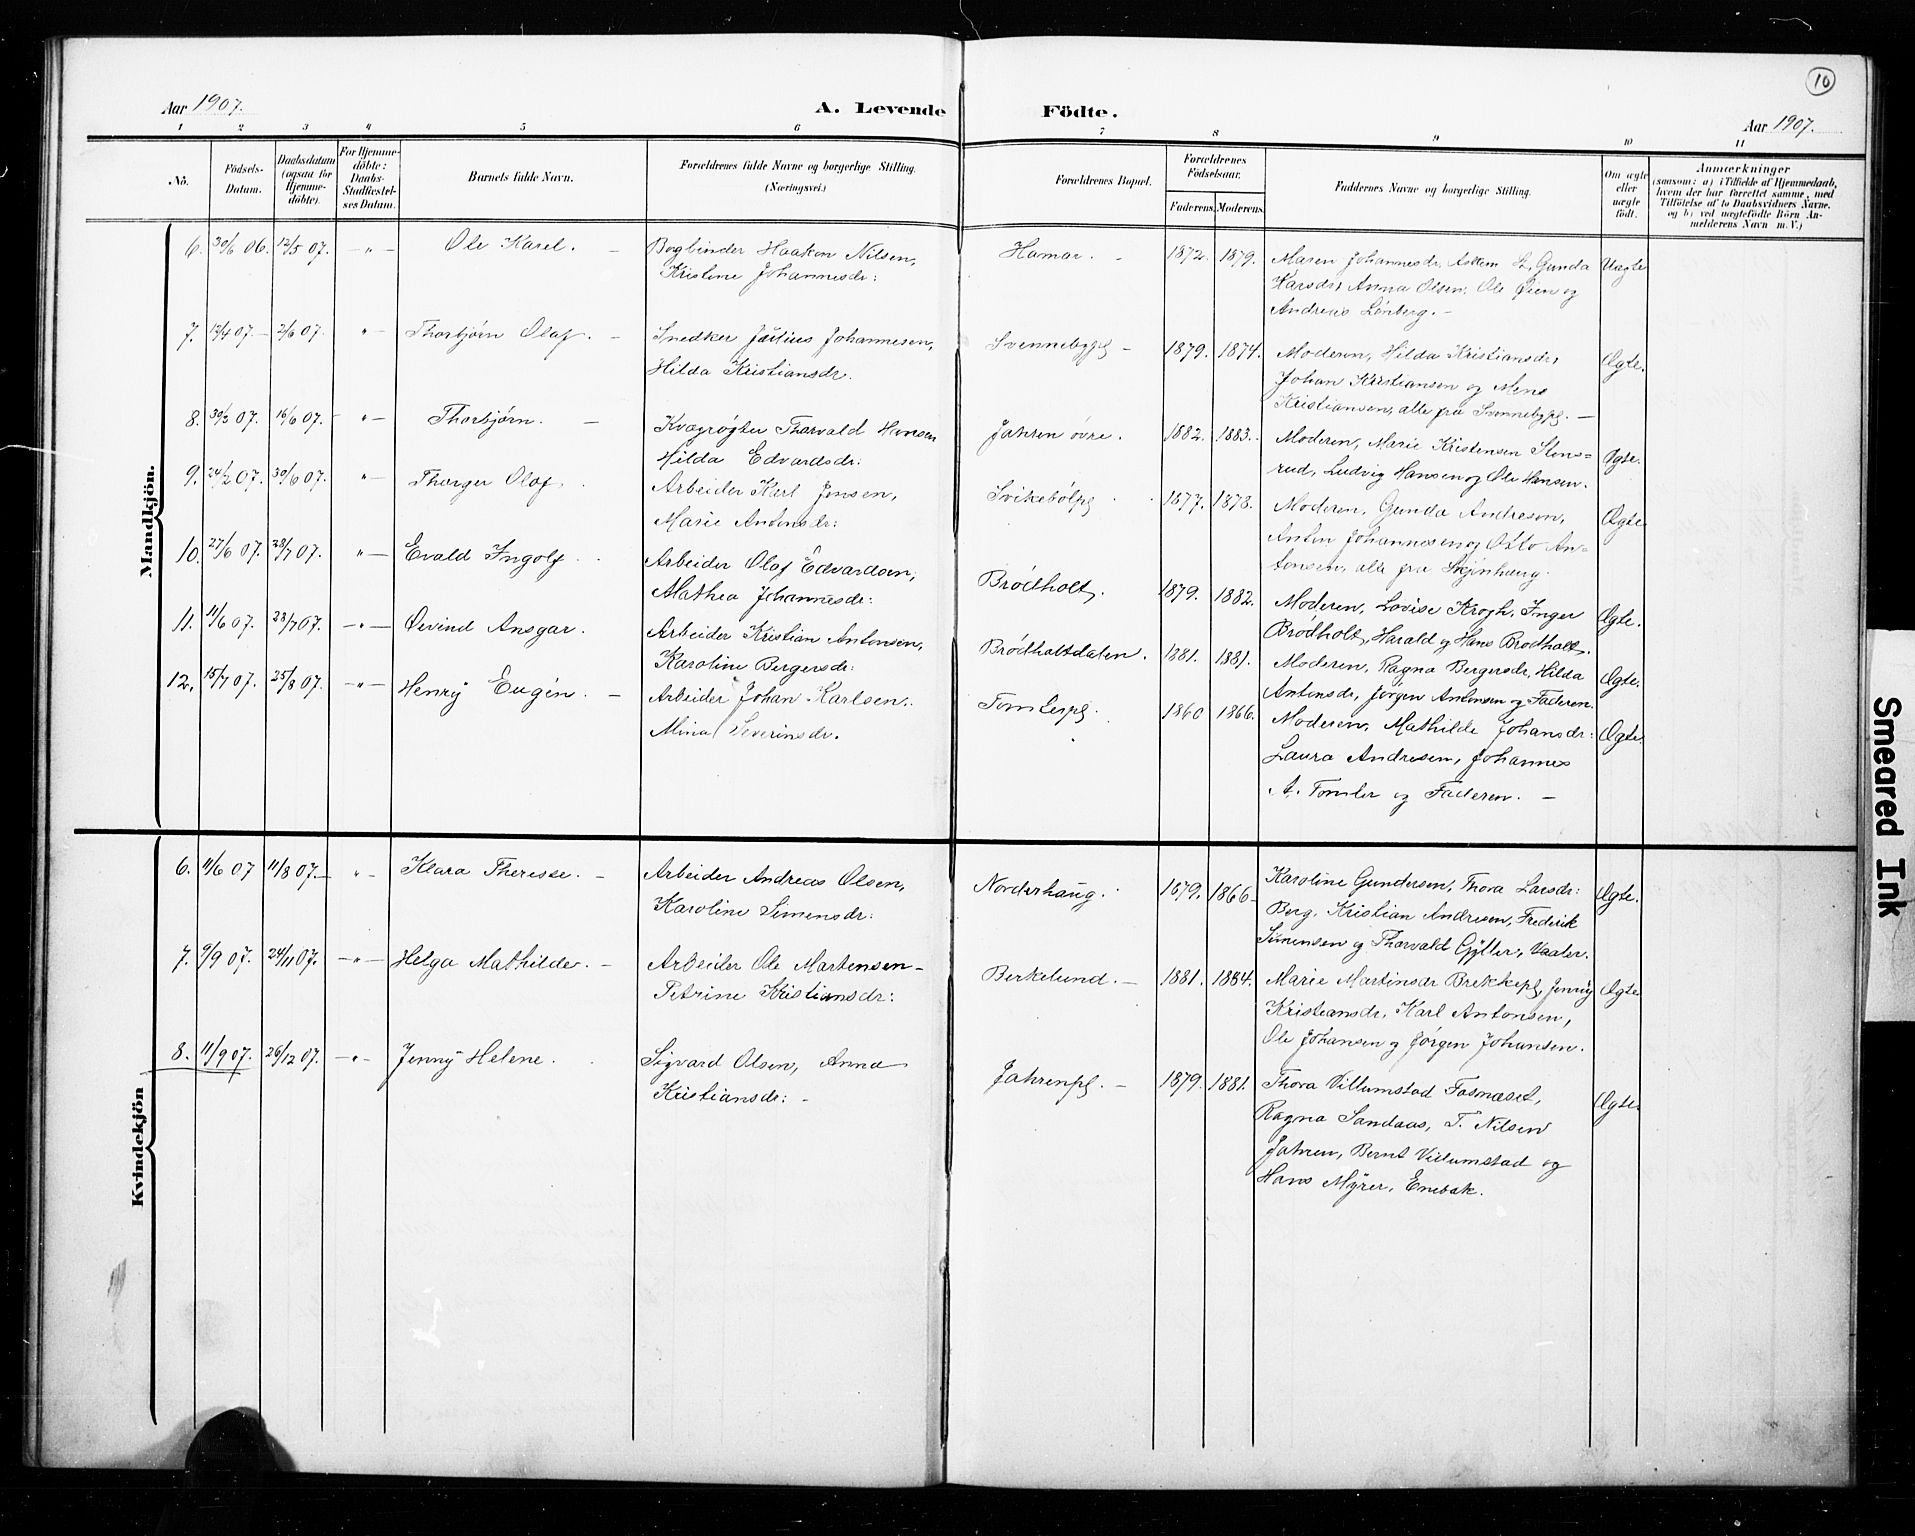 10
Aar 1907.
A. Levende Födte.
Aar 1907.
1 2 3 4 5 6 7 8 9 10 11
No.
Födsels-Datum.
Daabsdatum (ogsaa for Hjemme-döbte).
For Hjemme-döbte: Daabs-Stadfæstel-ses Datum.
Barnets fulde Navn.
Forældrenes fulde Navne og borgerlige Stilling.
(Næringsvei.)
Forældrenes Bopæl.
Forældrenes Födselsaar.
Faderens. Moderens.
Faddernes Navne og borgerlige Stilling.
Om ægte eller uægte födt.
Anmærkninger
(saasom: a) i Tilfælde af Hjemmedaab,
hvem der har forrettet samme, med
Tilföielse af to Daabsvidners Navne,
og b) ved uægtefödte Börn An-
melderens Navn m. V.)
Mandkjön.
6. 30/6 06. 12/5 07. — " — Ole Karel. — Bogbinder Haakon Nilsen, Hamar. - 1872. 1879. Maren Johannesdr, Gunda Uægte
Kristine Johannesdr: Larsdr, Anna Olsen, Ole Øien og
Andreas Lönberg. —
7. 12/4 07. 2/6 07. " — Thorbjörn Olaf. — Snedker Julius Johannesen, Svennebypl — 1879. 1874. Moderen, Hilda Kristiansdr, Ægte.
Hilda Kristiansdr. Johan Kristiansen og Mens
Kristiansen, alle fra Svennebypl. —
8. 30/3 07. 16/6 07. " — Thorbjörn. — Kvægrögter Thorvald Hansen Jahren övre. 1882. 1883. Moderen, Marie Kristensen Stens- Ægte.
Hilda Edvardsdr: rud, Ludvig Hansen og Ole Hansen.
9. 24/2 07. 30/6 07. " — Thorger Olaf. Arbeider Karl Jensen, Svikebölpl 1877. 1878. Moderen, Gunda Andresen, Ægte
Marie Antonsdr: Anton Johannesen og Otto An-
tonsen, alle fra
10. 27/6 07. 28/7 07. " — Evald Ingolf Arbeider Olaf Edvardsen, Brödholt. 1879. 1882. Moderen, Lovise Krogh, Inger Ægte.
Mathea Johannesdr: Brödholt, Harald og Hans Brödholt.
11. 11/6 07. 28/7 07. — " — Öivind Ansgar. Arbeider Kristian Antonsen, Brödholtdalen. 1881. 1881. Moderen, Ragna Bergersdr, Hilda Ægte.
Karoline Bergersdr: Antonsdr, Jörgen Antonsen og Faderen.
12. 15/7 07. 25/8 07. — " — Henry Eugén. — Arbeider Johan Karlsen, Tomlerpl. 1860 1866. Moderen, Mathilde Johansdr: Ægte.
Mina Severinsdr. Laura Andresen, Johannes
A. Tomler og Faderen. —
Kvindekjön
6. 11/6 07 11/8 07. — " - Klara Therese. — Arbeider Andreas Olsen, Norderhaug. 1879. 1866 Karoline Gundersen, Thora Larsdr: Ægte.
Karoline Simensdr: Berg, Kristian Andresen, Frederik
Simensen og Thorvald Gyller, Vaaler.
7. 9/9 07. 24/11 07. — " — Helga Mathilde. — Arbeider Ole Martensen — Berkelund. — 1881. 1884. Marie Martinsdr Brekkepl, Jenny Ægte
Petrine Kristiansdr: Kristiansdr, Karl Antonsen,
Ole Johansen og Jörgen Johansen.
8. 11/9 07. 26/12 07. — " - Jenny Helene. Sigvard Olsen, Anna Jahrenpl. — 1879. 1881. Thora Villumstad Fosnæset, Ægte.
Kristiansdr: - Ragna Sandaas, T. Nilsen
Jahren, Bernt Villumstad og
Hans Myrer, Enebak.
Smeared Ink